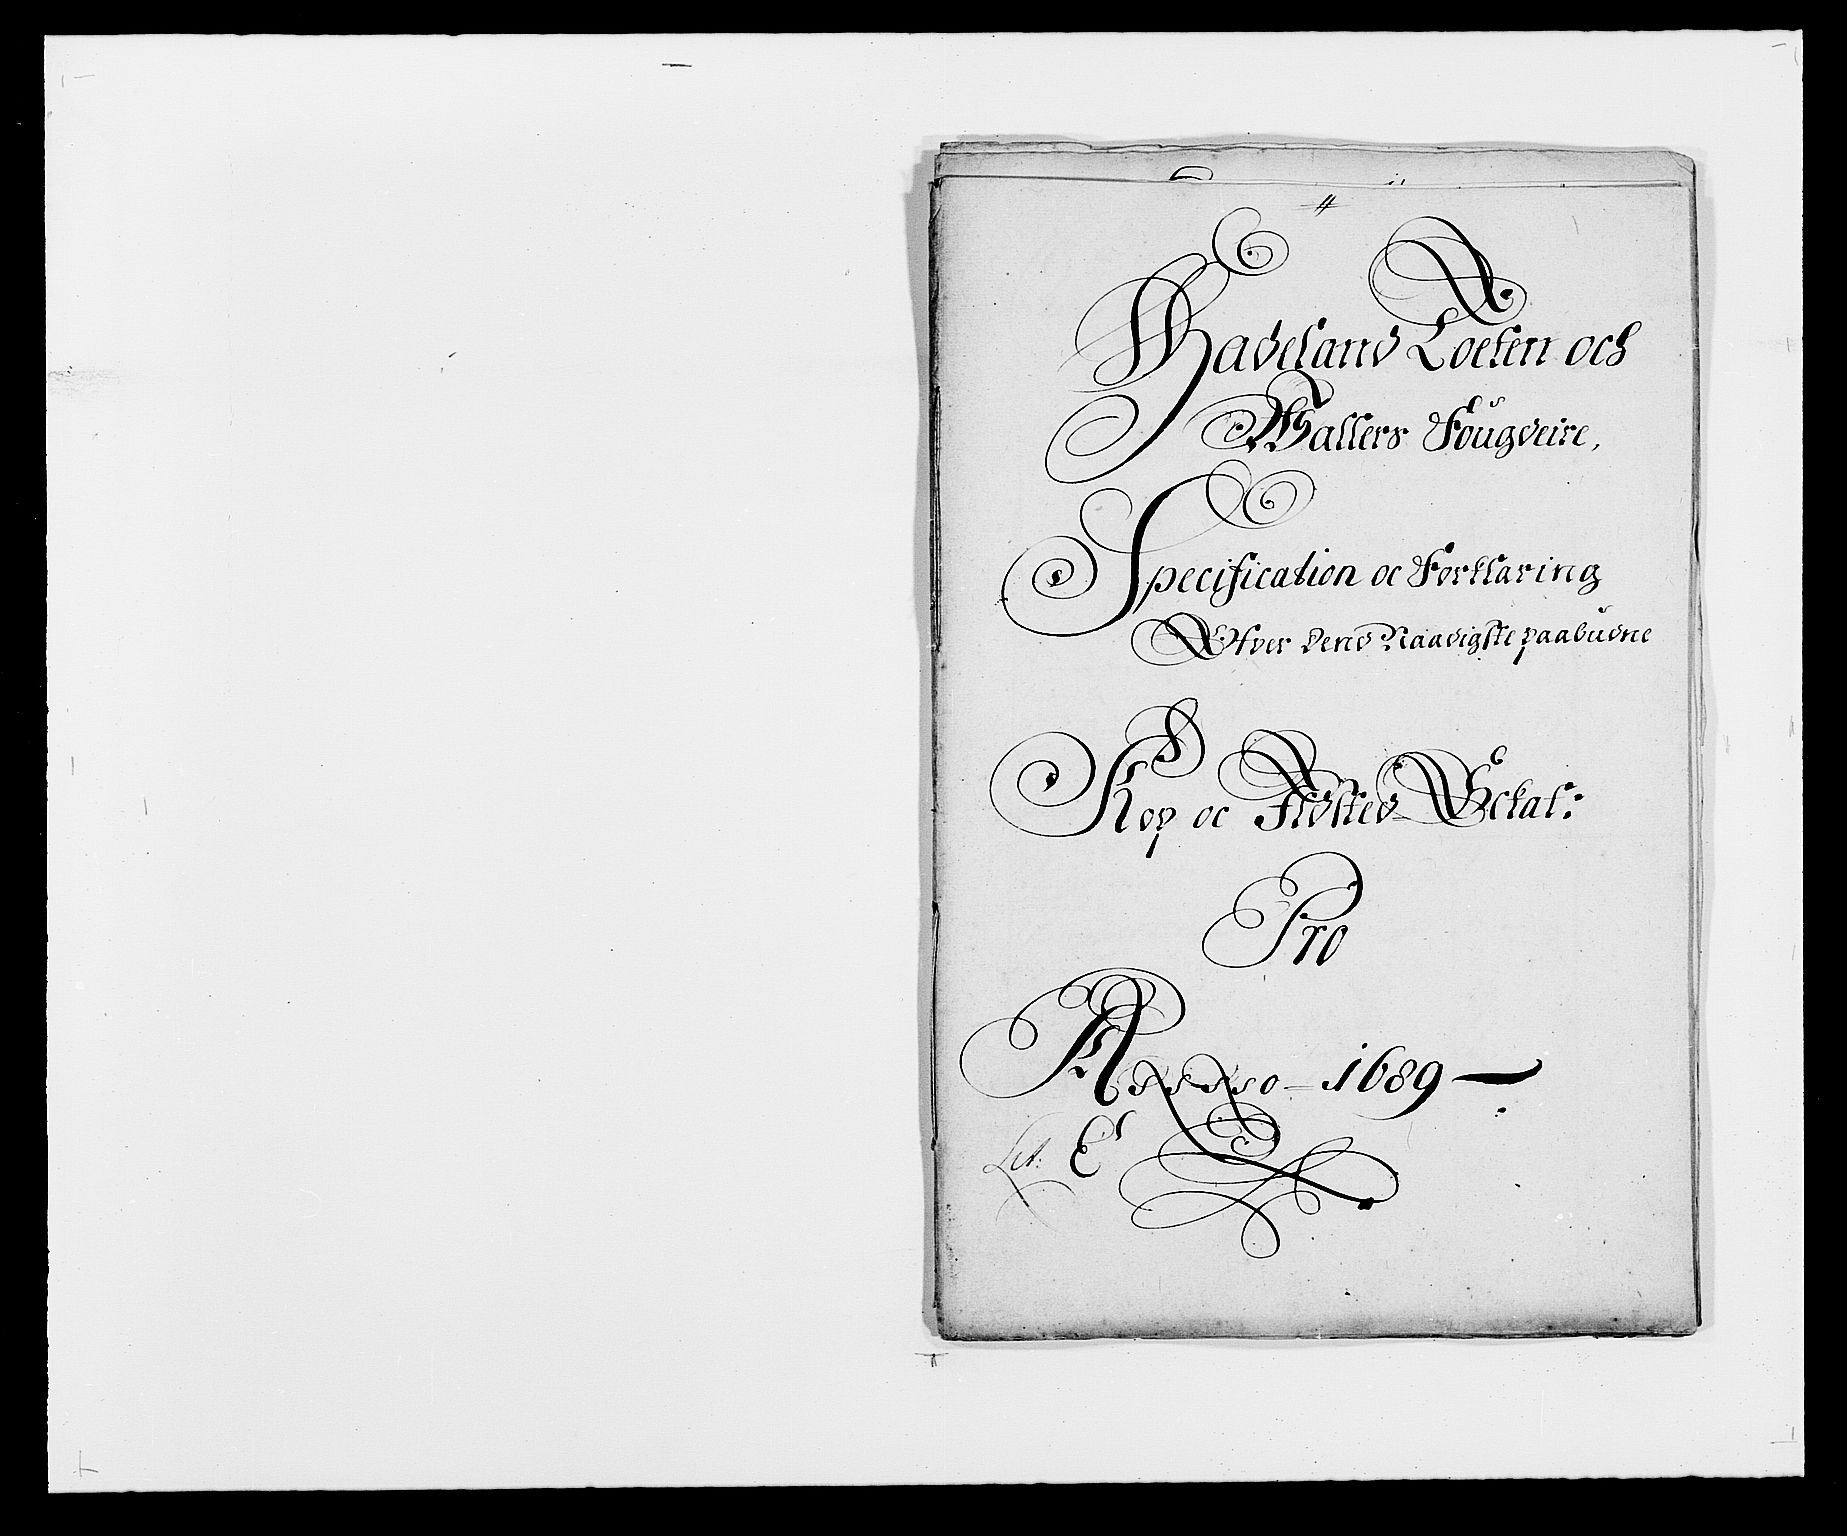 Hadeland Toeten och
Wallers Fougderie,
Specification oc Forklaring
Ofver dend Naadigste paabudne
Kop oc Ildsted Schat:
Pro
Anno 1689
Lit: E